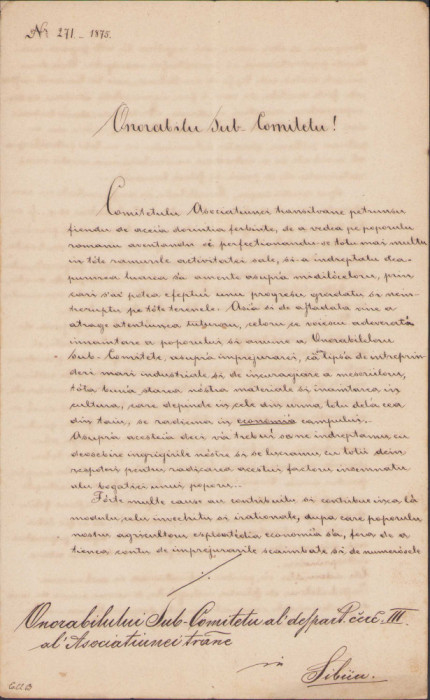 Nr. 271. - 1875.
Onorabilu Sub-Comitetu!
Comitetulu Asociatiunei transilvane petrunsu
fiendu de aceia dorintia ferbinte, de a vedea pe poporulu
romanu aventandu si perfectionandu-se totu mai multu
in tóte ramurele activitatei sale, si-a indreptatu dea-
punerea luarea sa aminte asupra midilócelor, prin
cari s'ar potea efeptui unu progresu gradatu si nein-
treruptu pe tóte terenele. Asia si de astadata vine a
atrage atentiunea tuturoru, celoru ce voiescu adeverata
inaintare a poporului si anume a Onorabileloru
Sub-Comitete, asupra impregiurarei, că lipsa de intreprin-
deri mari industriale si de incuragiare a meserieloru,
tóta buna starea nóstra materiale si inaintarea in
cultura, care depinde in cele din urma totu dela cea
din taiu, se radiema in economia campului.
Asupra acesteia deci va trebui sa ne indreptamu cu
deosebire ingrigirile nóstre si se lucramu cu totii dein
respoderi pentru radicarea acestui factoru insemnatu
alu bogatiei unui poporu.
Fórte multe cause au contribuitu si contribue inca la
modulu celu invechitu si irationale, dupa care poporulu
nostru agricultoru esploatédia economi'a s'a, fora de a
tienea contu de impregiurarile scaimbate si de numerósele
Onorabilului Sub-Comitetu al despart. cerc. III.
al Asociatiunei trane
in Sibiiu.